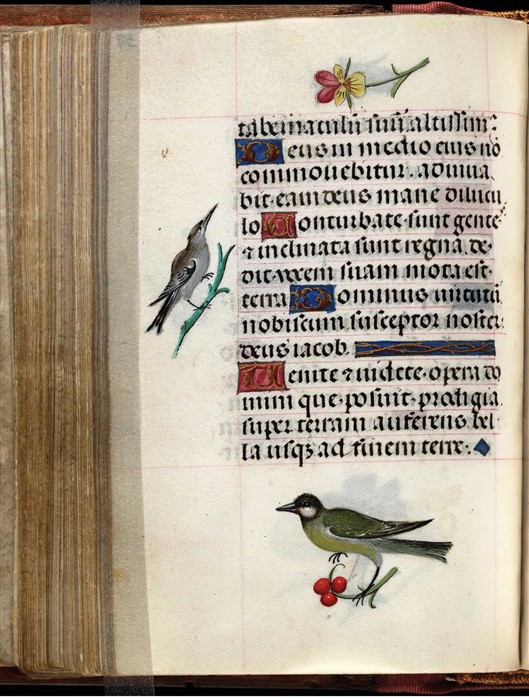 tabernaculũ suũ altissim⁹.
Deus in medio eius nõ
commouebitur. adiuua
bit eam deus mane dilucu
lo Conturbate sunt gente⁹
⁊ inclinata sunt regna. de
dit vocem suam mota est
terra Dominus uirtutũ
nobiscum susceptor noster
deus iacob.
Uenite ⁊ uidete opera do
mini que posuit prodigia
super terram auferens bel
la usqꝫ ad finem terre.